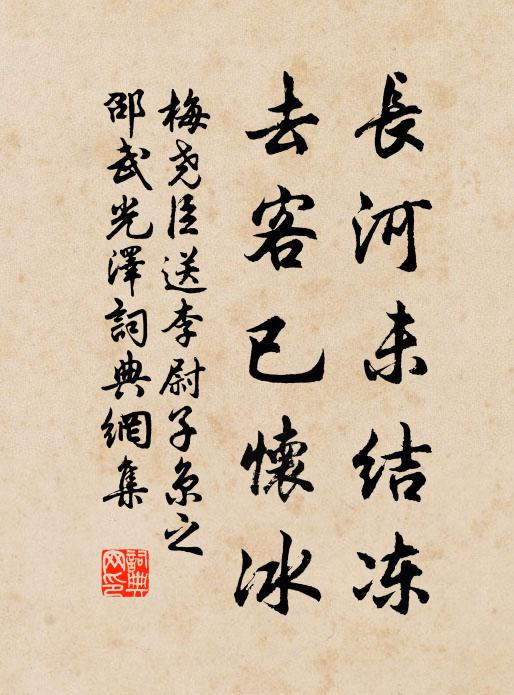 長河未结冻
去客已懷冰
梅尧臣送李尉子京之
邵武光澤詞典網集
詞典
网印